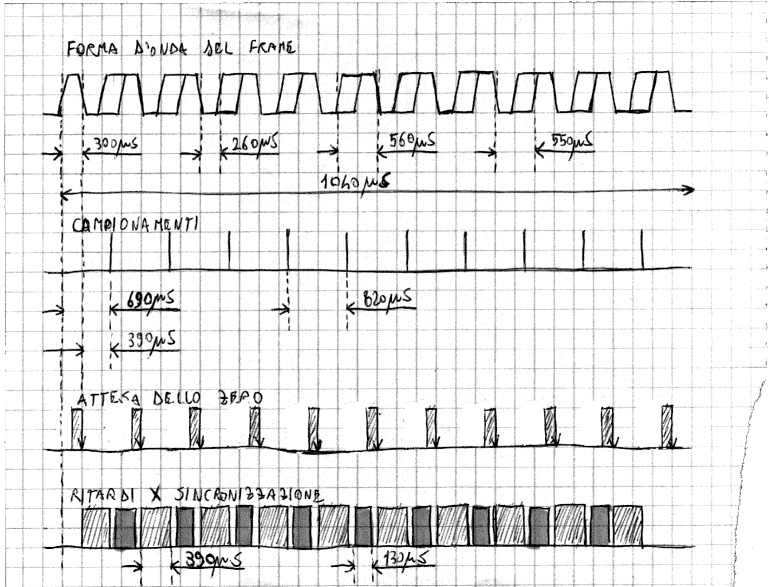 FORMA D'ONDA DEL FRAME
300µS 260µS 560µS 550µS
1040µS
CAMPIONAMENTI
690µS 820µS
390µS
ATTESA DELLO ZERO
RITARDI X SINCRONIZZAZIONE
390µS 130µS